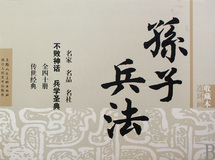 孫子
兵法
名家 名品 名社
不败神话 兵学圣典
全四十册
传世经典